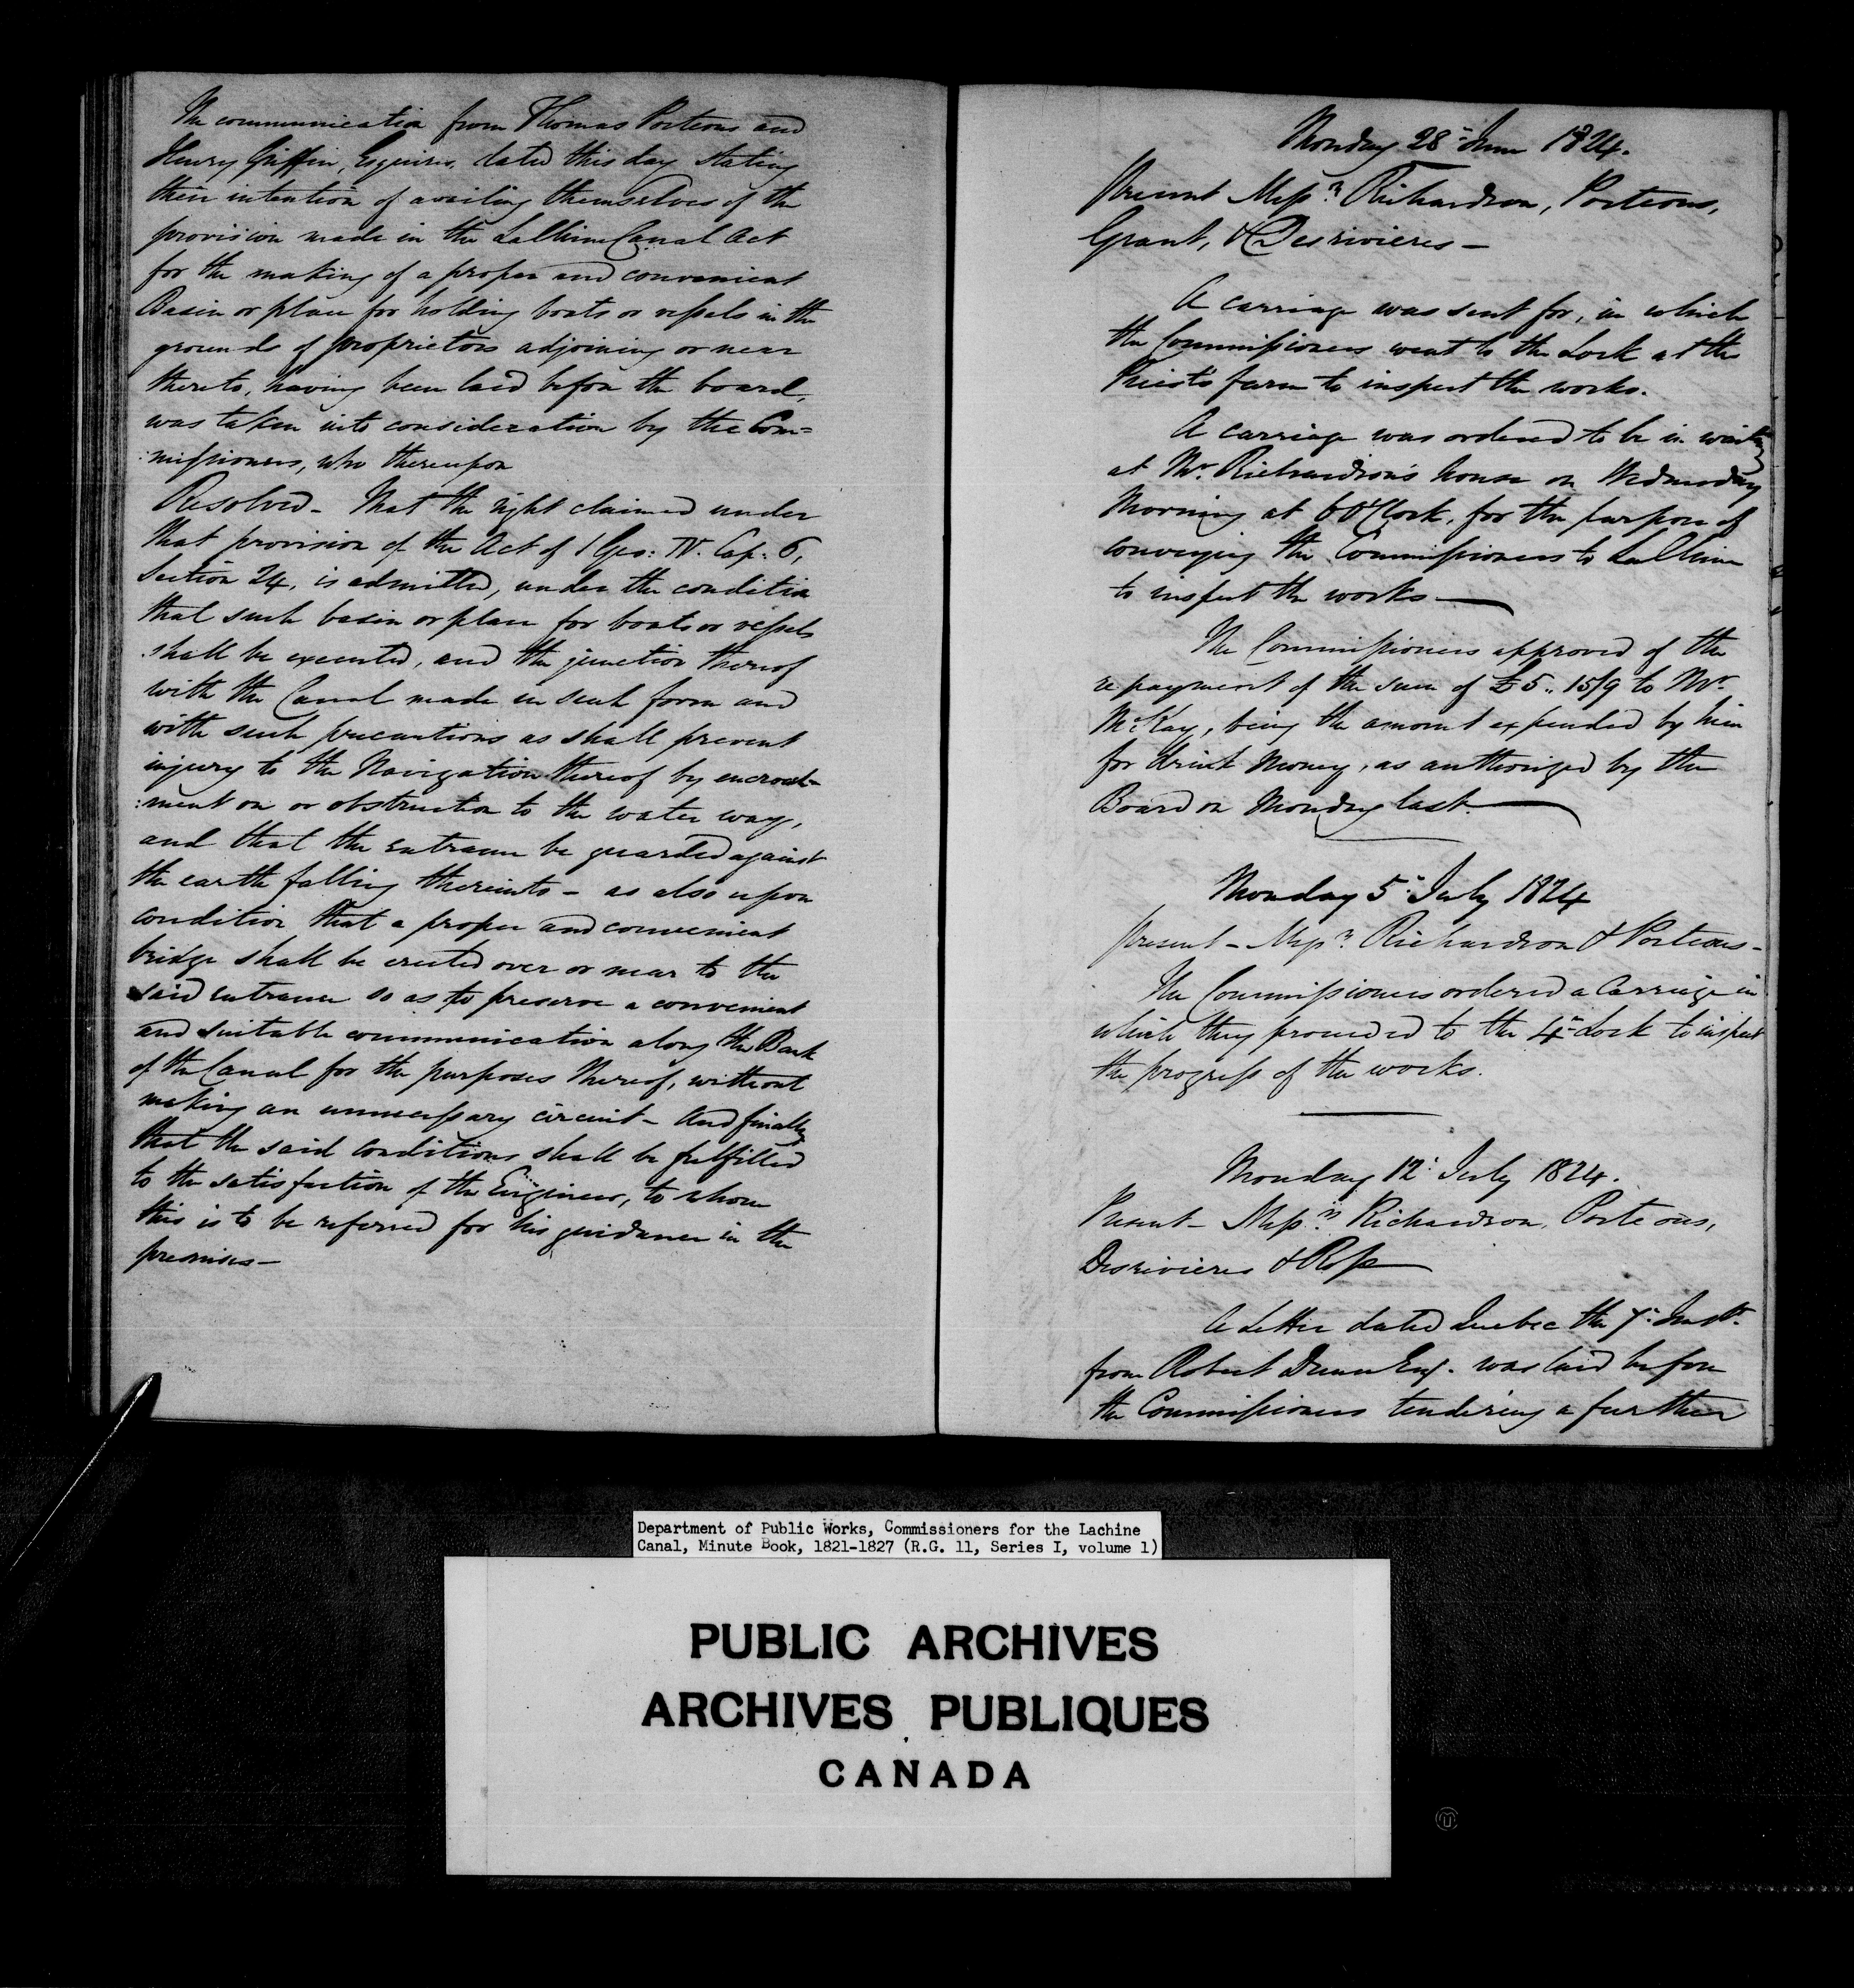 The communication from Thomas Porteous and
Henry Griffin, Esquires, dated this day stating
their intention of availing themselves of the
provision made in the La Chine Canal Act
for the making of a proper and convenient
Basin or place for holding boats or vessels in the
grounds of proprietors adjoining or near
thereto, having been laid before the board,
was taken into consideration by the Com=
:missioners, who thereupon
Resolved - That the right claimed under
that provision of the Act of 1 Geo: IV. Cap: 6,
Section 24, is admitted, under the condition
that such basin or place for boats or vessels
shall be executed, and the junction thereof
with the Canal made in such form and
with such precautions as shall prevent
injury to the Navigation thereof by encroach-
:ment on or obstruction to the water way,
and that the entrance be guarded against
the earth falling thereinto - as also upon
condition that a proper and convenient
bridge shall be erected over or near to the
said entrance so as to preserve a convenient
and suitable communication along the Bank
of the Canal for the purposes thereof, without
making an unnecessary circuit - And finally
that the said conditions shall be fulfilled
to the satisfaction of the Engineer, to whom
this is to be referred for his guidance in the
premises -
Monday 28th June 1824.
Present Messrs Richardson, Porteous,
Grant, & Desrivieres -
A carriage was sent for, in which
the Commissioners went to the Lock at the
Priest's farm to inspect the works.
A carriage was ordered to be in waiting
at Mr. Richardson's house on Wednesday
Morning at 6 O'Clock, for the purpose of
conveying the Commissioners to La Chine
to inspect the works -
The Commissioners approved of the
repayment of the sum of £5.. 15/9 to Mr.
McKay, being the amount expended by him
for drink Money, as authorized by the
Board on Monday last.
Monday 5th July 1824
Present - Messrs Richardson & Porteous -
The Commissioners ordered a Carriage in
which they proceeded to the 4th Lock to inspect
the progress of the works.
Monday 12th July 1824.
Present - Messrs Richardson, Porteous,
Desrivieres & Ross
A Letter dated Quebec the 7th Inst.
from Robert Dunn Esq. was laid before
the Commissioners tendering a further
Department of Public Works, Commissioners for the Lachine
Canal, Minute Book, 1821-1827 (R.G. 11, Series I, volume 1)
PUBLIC ARCHIVES
ARCHIVES PUBLIQUES
CANADA